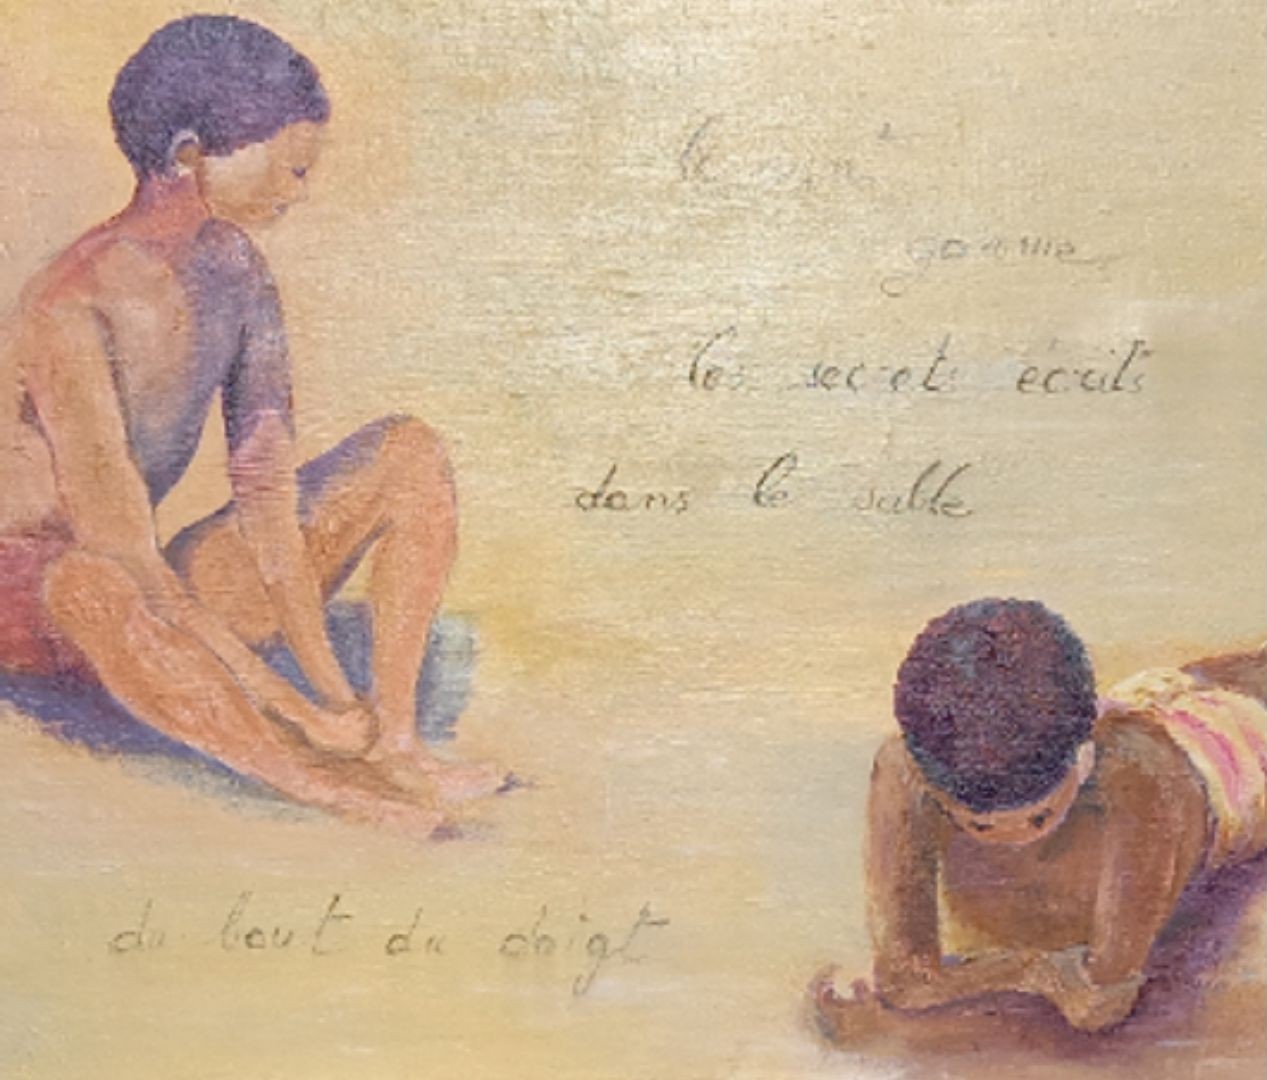 le vent
gomme
les secrets écrits
dans le sable
du bout du doigt